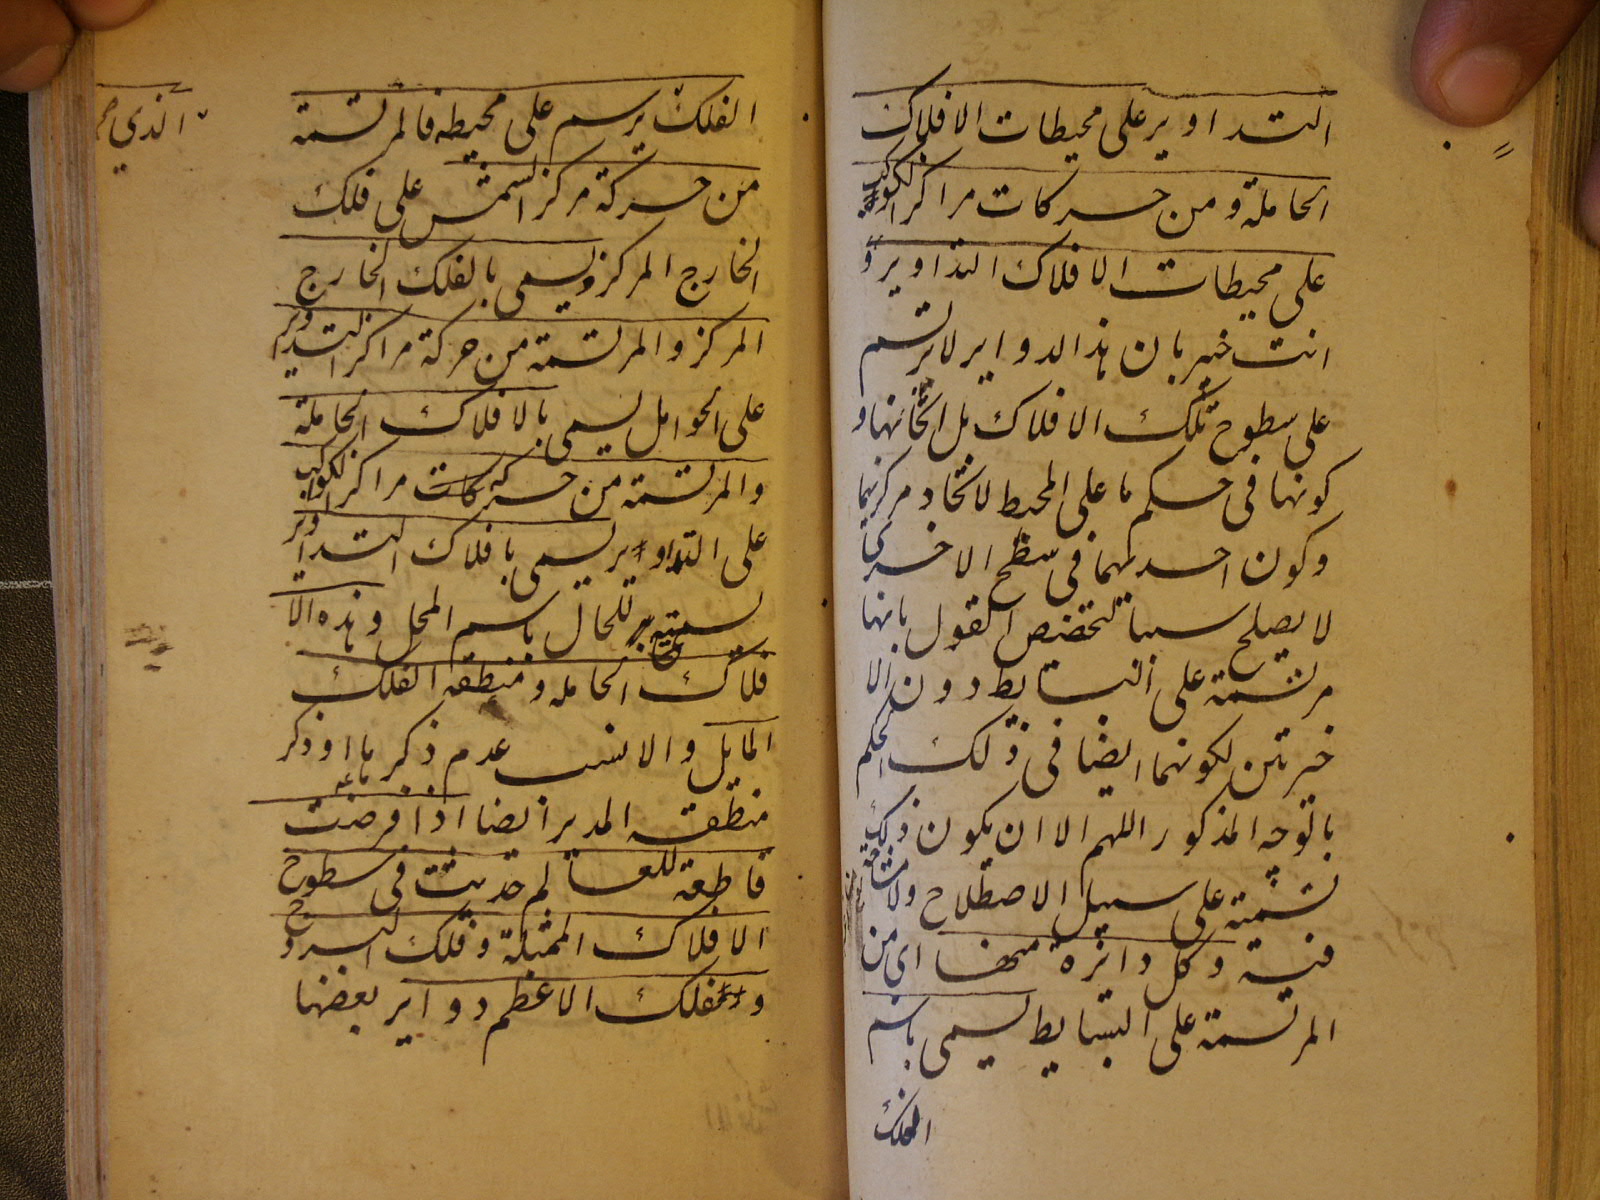 التداوير على محيطات الافلاك
الحاملة و من حركات مراكز الكواكب
على محيطات الافلاك التداوير و
انت خبير بان هذا الدواير لا يرتسم
على سطوح تلك الافلاك بل اثخانها و
كونها فى حكم ما على المحيط لاتحاد مركزيهما
و كون احديهما فى سطح الاخرى
لا يصلح سببا لتخصص القول بانها
مرتسمة على البسايط دون الا
خيرتين لكونهما ايضا فى ذلك الحكم
بالوجه المذكور اللهم الا ان يكون ذلك
تسمية على سبيل الاصطلاح ولا مشاحة
فيه و كل دائرة منها اى من
المرتسمة على البسايط يسمى باسم
الفلك
الفلك يرسم على محيطه فالمرتسمة
الذي
من حركة مركز الشمس على فلك
الخارج المركز و يسمى بالفلك الخارج
المركز و المرتسمة من حركة مراكز التدوير
على الحوامل يسمى بالافلاك الحاملة
و المرتسمة من حركات مراكز الكواكب
على التداوير يسمى بافلاك التداوير
تسمية للحال باسم المحل و هذه الا
فلاك الحاملة و منطقة الفلك
المايل و الانسب عدم ذكرها او ذكر
منطقة المدير ايضا اذا فرضت
قاطعة للعالم حدثت فى سطوح
الافلاك الممثلة و فلك البروج
و الفلك الاعظم دواير بعضها